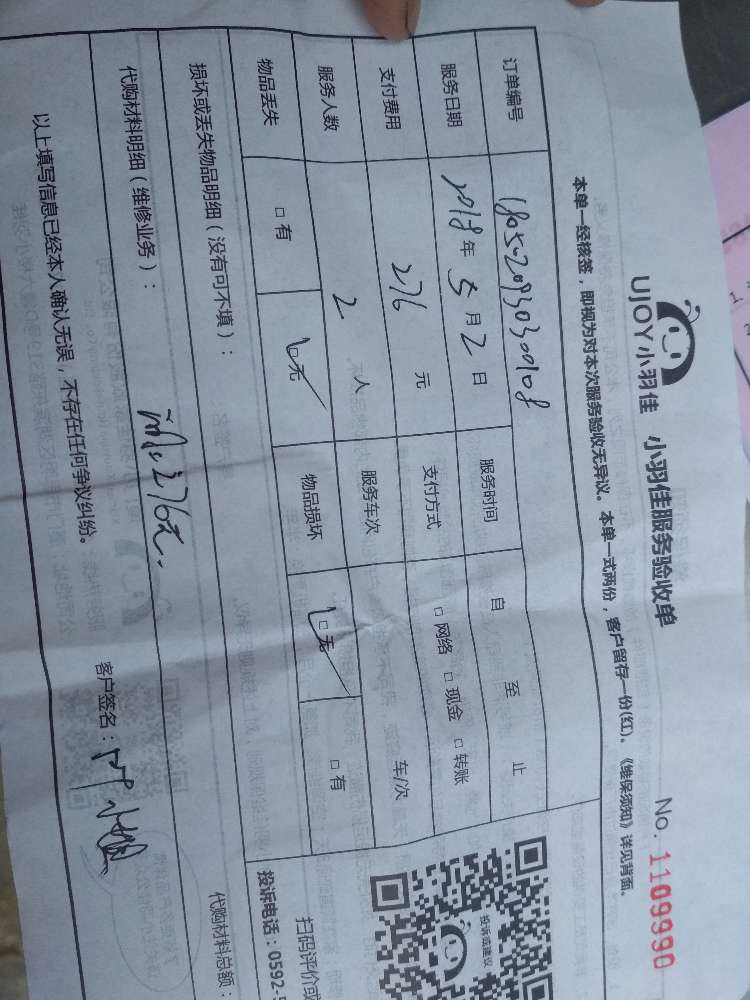 UJOY小羽佳 小羽佳服务验收单 No. 1109990
本单一经核签，即视为对本次服务验收无异议。本单一式两份，客户留存一份(红)。《维保须知》详见背面。
订单编号 服务时间 自 至 止
服务日期 2018年5月2日
支付费用 276 元 支付方式 □网络 □现金 □转账
服务人数 2 人 服务车次 车/次
物品丢失 □有 □无 物品损坏 □无 □有
损坏或丢失物品明细（没有可不填）：
代购材料明细（维修业务）： 代购材料总额：
276元.
以上填写信息已经本人确认无误，不存在任何争议纠纷。 客户签名：
投诉或建议
扫码评价或
投诉电话：0592-5